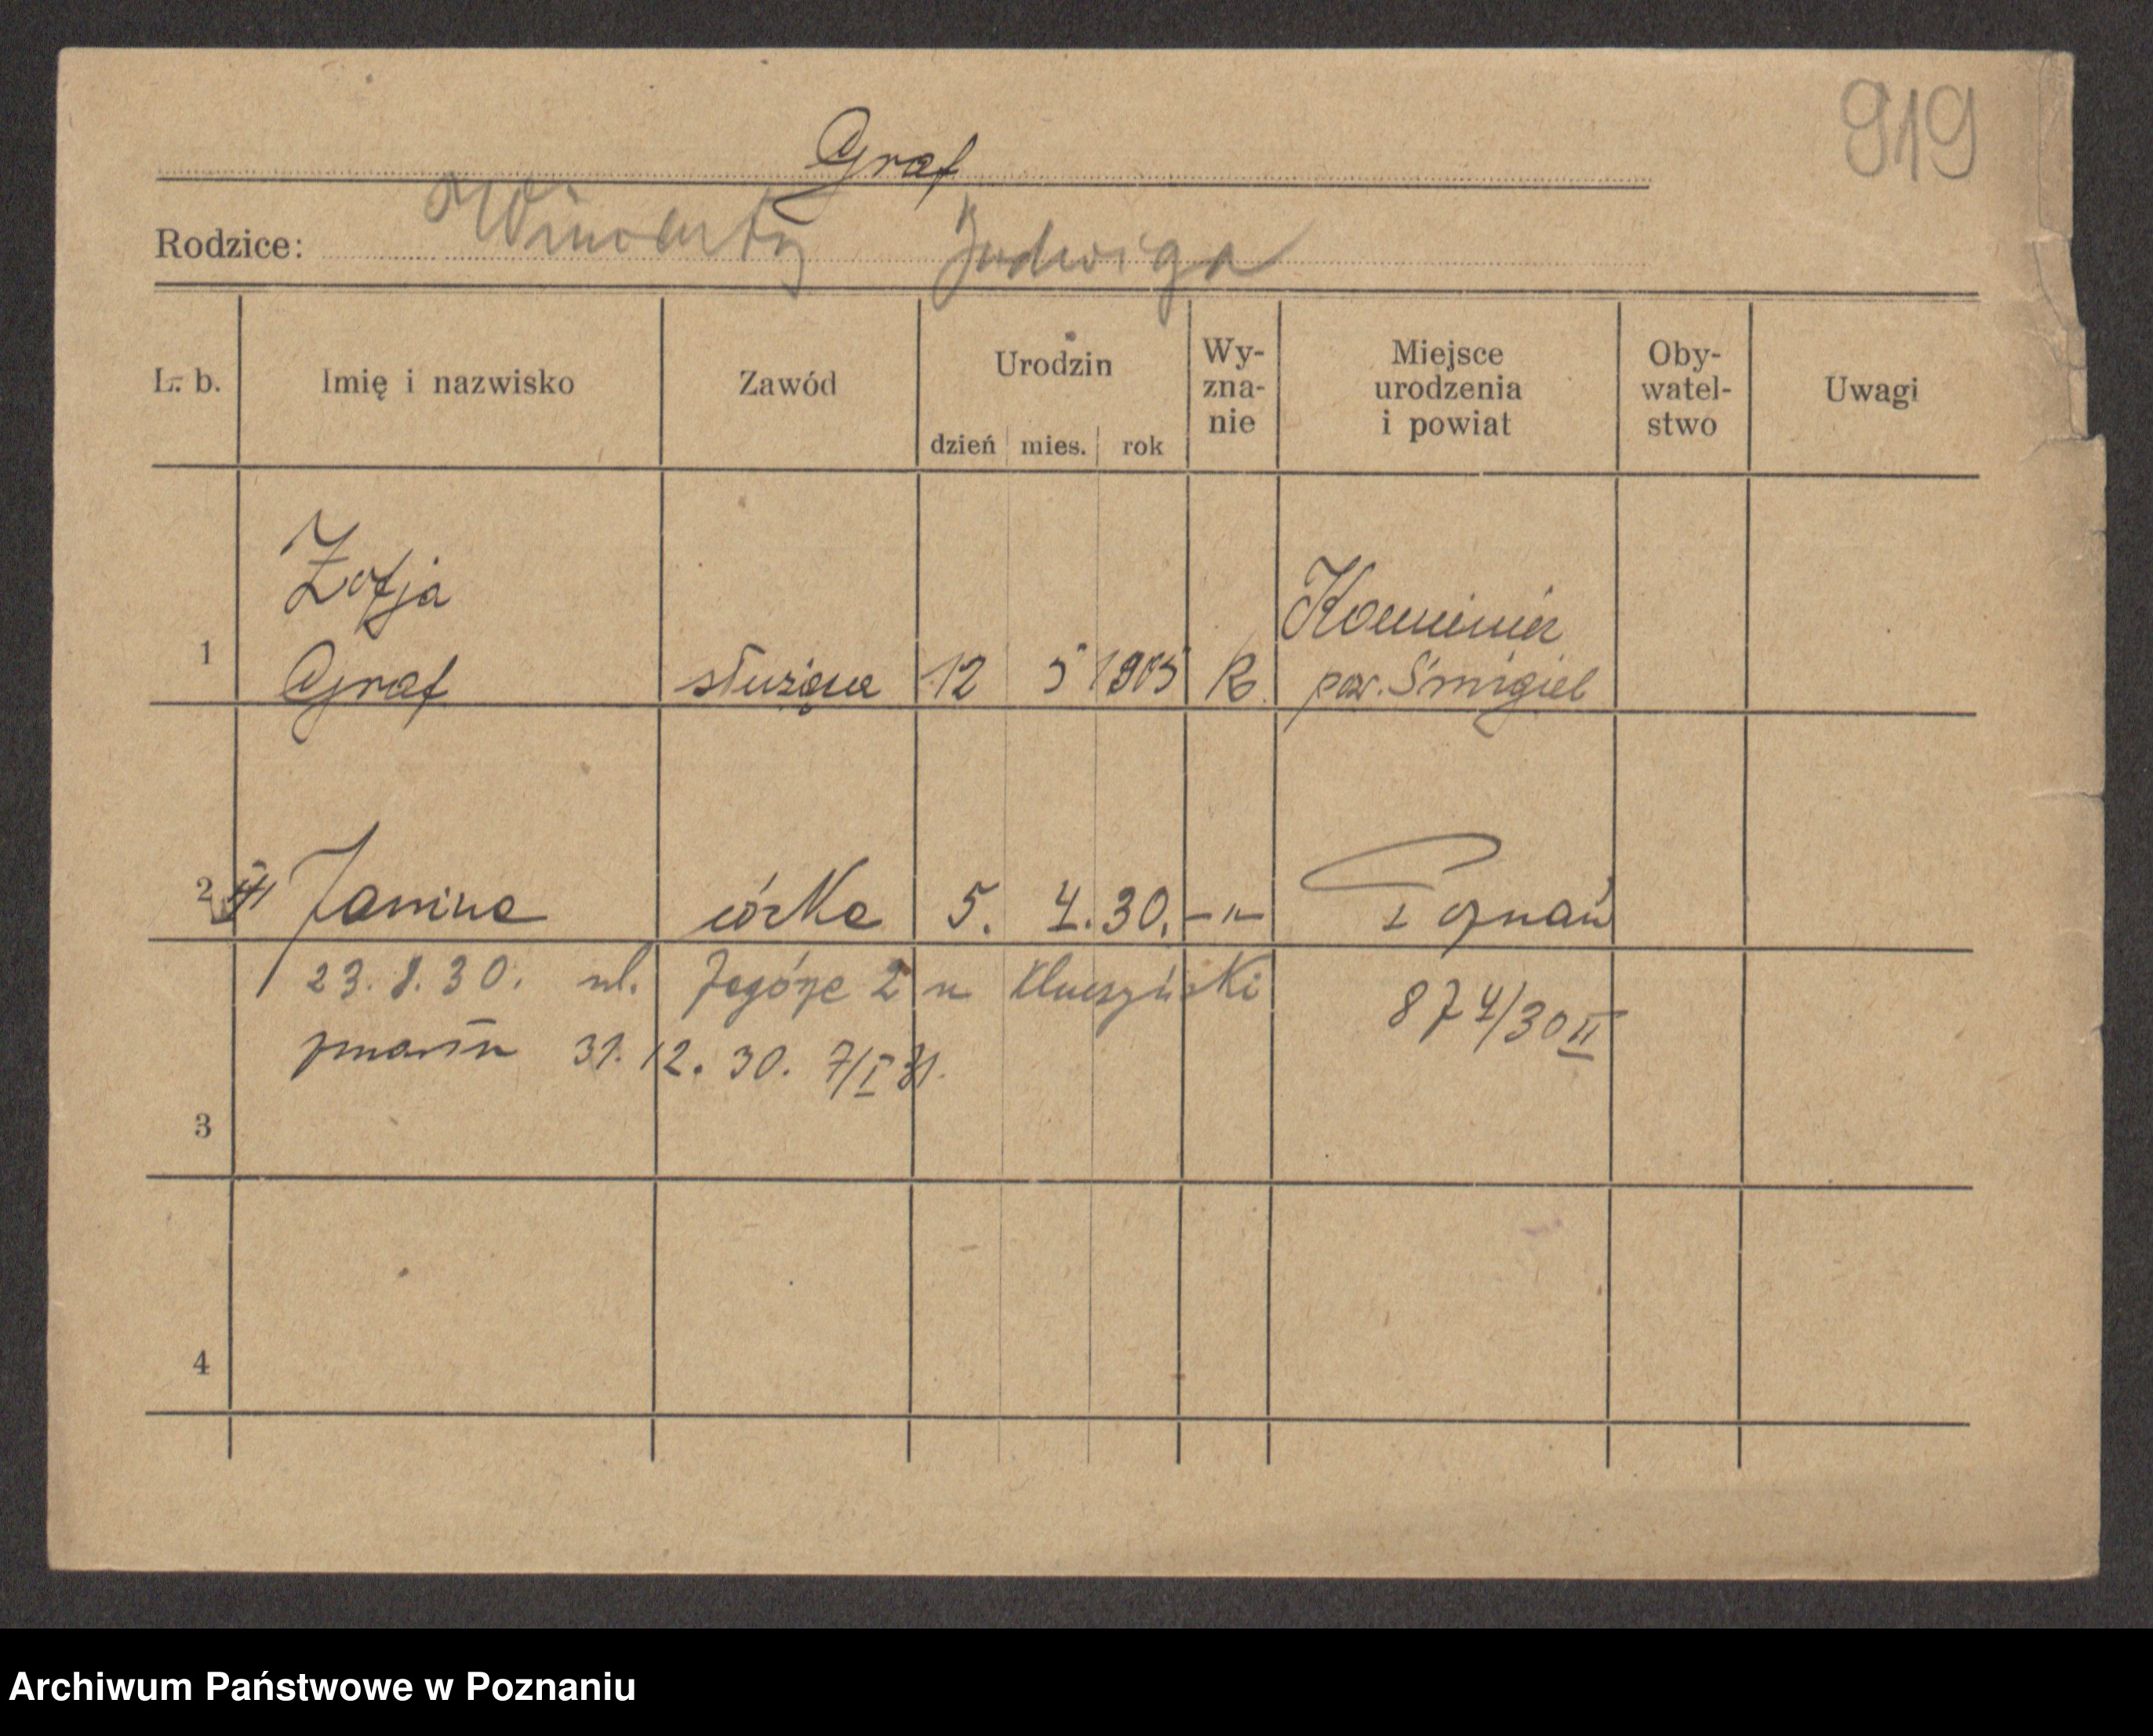 919
Graf
Rodzice: Wincenty Jadwiga
L. b. Imię i nazwisko Zawód Urodzin dzień mies. rok Wy-zna-nie Miejsce urodzenia i powiat Oby-watel-stwo Uwagi
Zofja
1 Graf służąca 12 5 1905 R. pow. Śmigiel
2 Janina córka 5. 4. 30. -"- Poznań
23. 8. 30. ul. 2 u
874/30 II
31. 12. 30. 7/I 31.
3
4
Archiwum Państwowe w Poznaniu